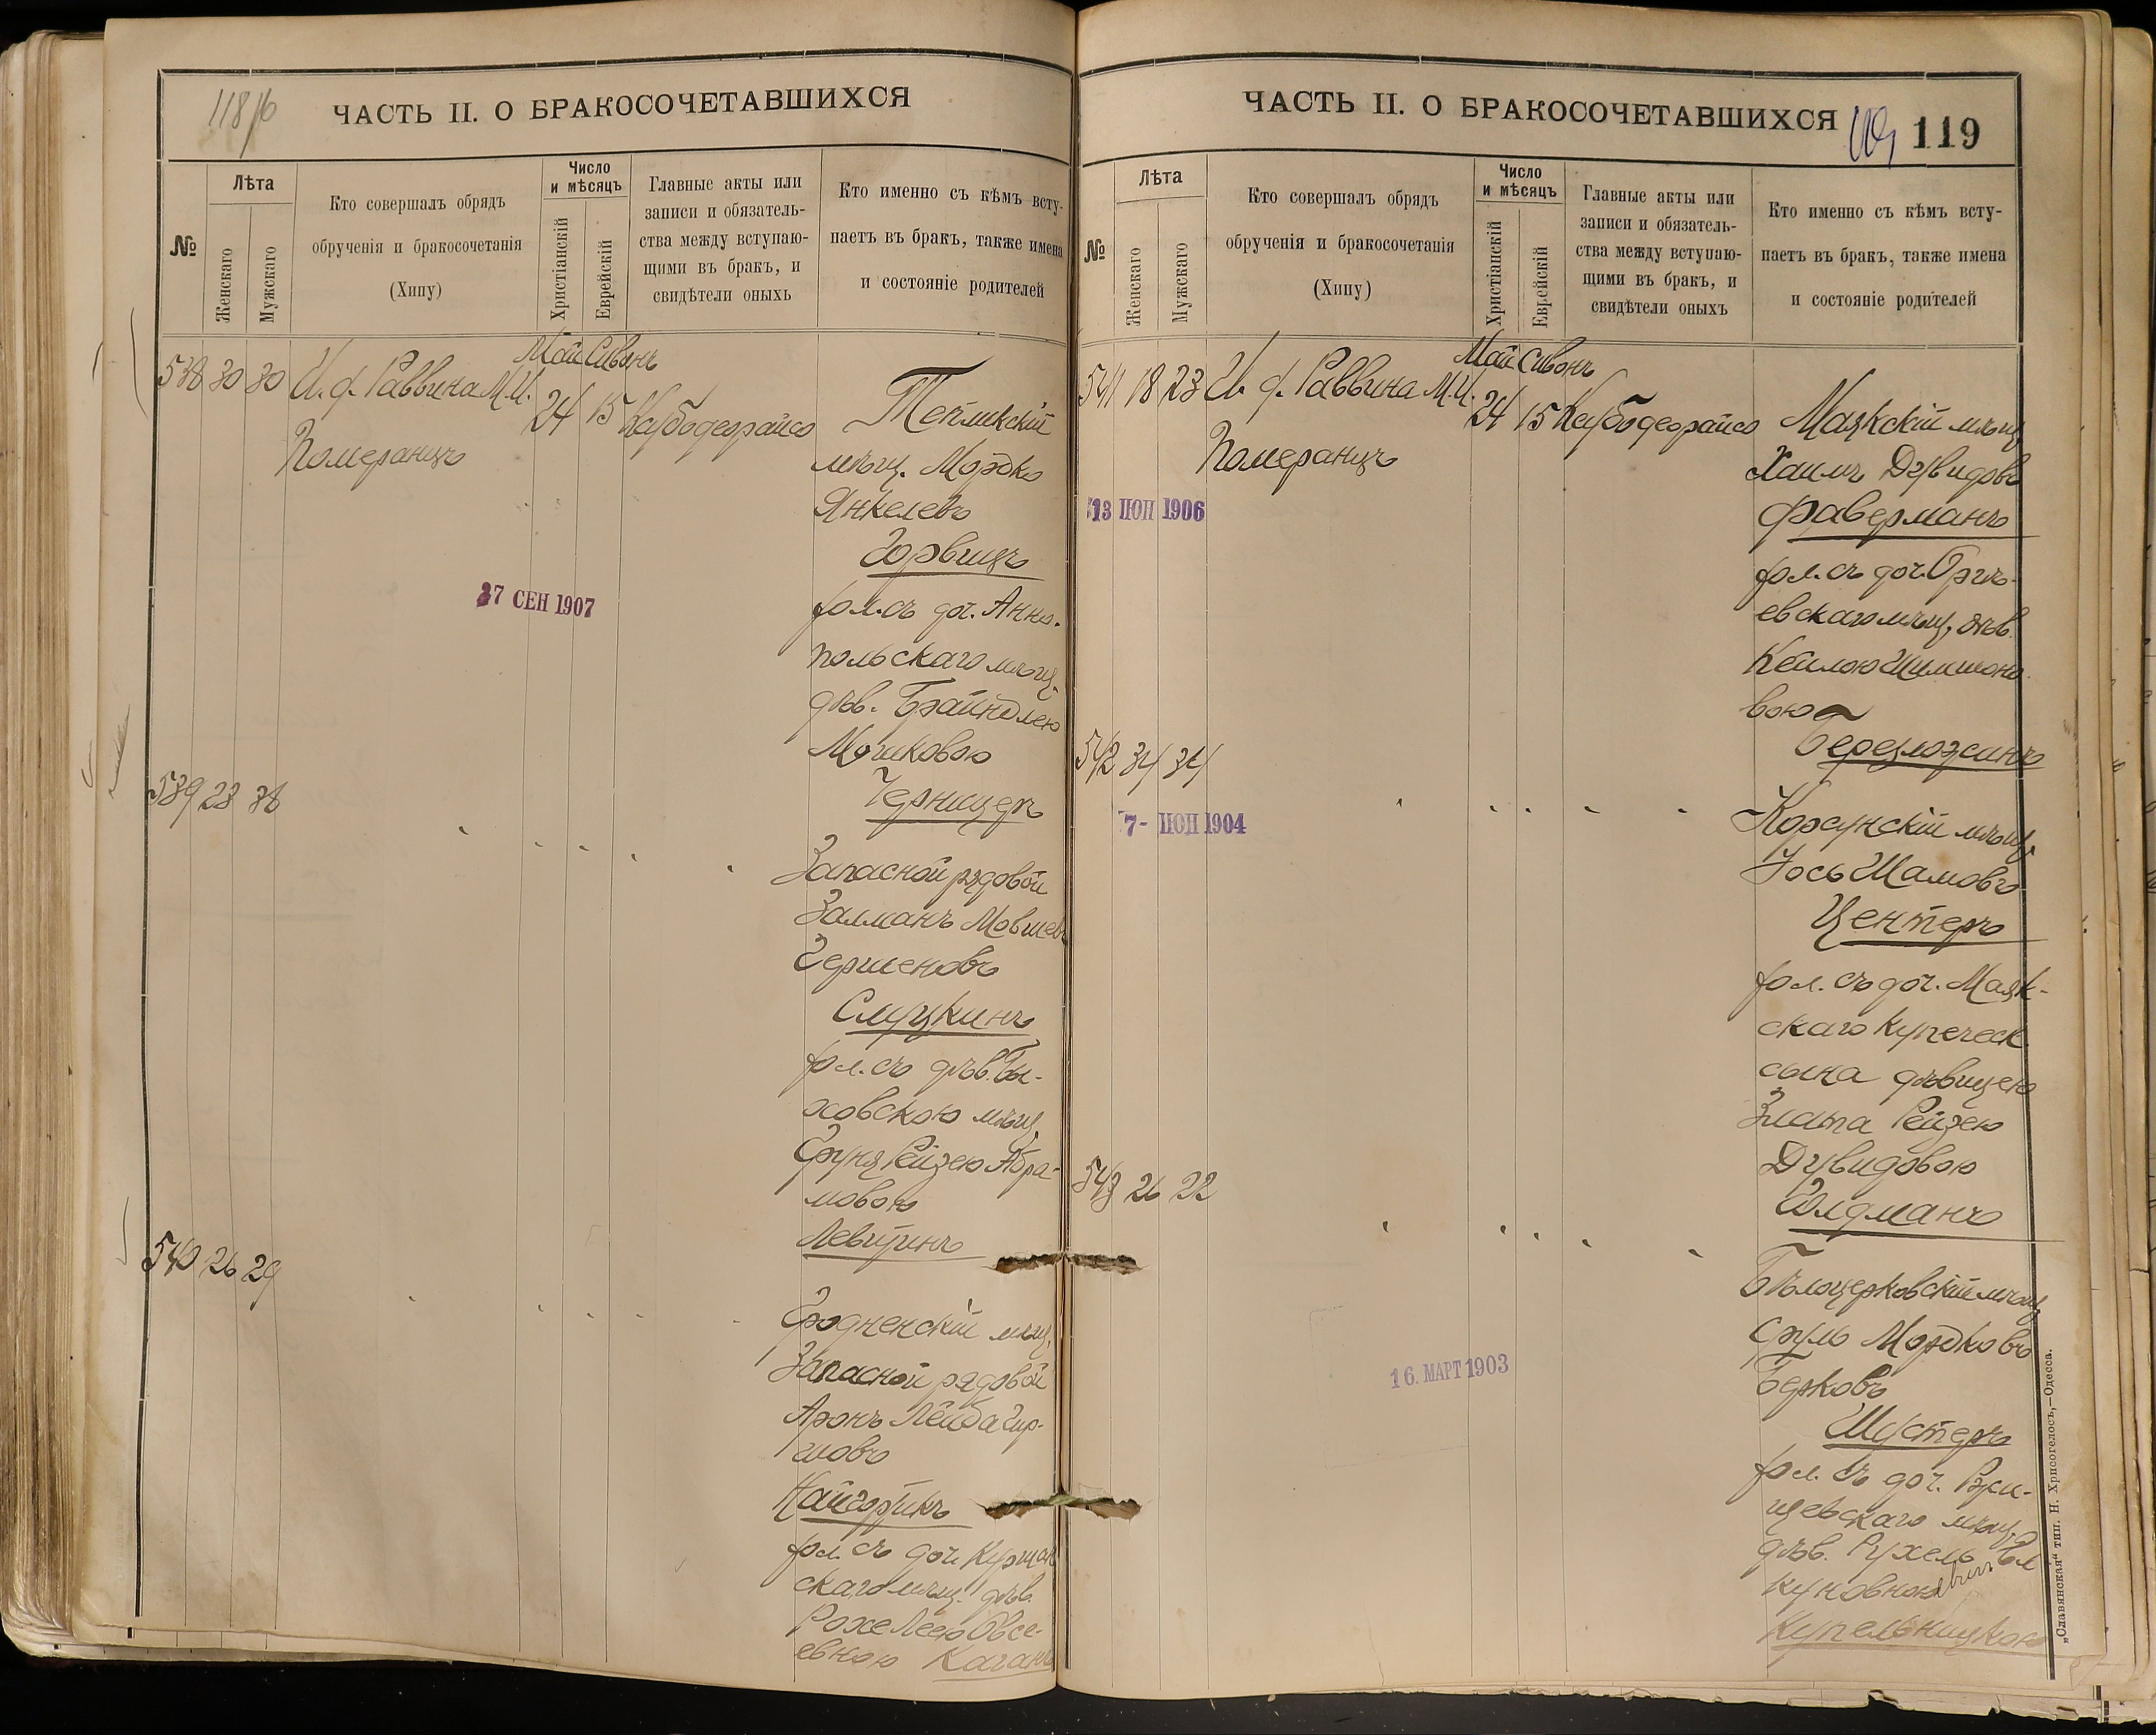 118/б
ЧАСТЬ II. О БРАКОСОЧЕТАВШИХСЯ
№
Лѣта
Женскаго
Мужскаго
Кто совершалъ обрядъ
обрученія и бракосочетанія
(Хипу)
Число
и мѣсяцъ
Христіанскій
Еврейскій
Главные акты или
записи и обязатель-
ства между вступаю-
щими въ бракъ, и
свидѣтели оныхъ
Кто именно съ кѣмъ всту-
паетъ въ бракъ, также имена
и состояніе родителей
Май Сивонъ
538 30 30 И. ф. Раввина М. И.
Померанцъ
24 15
Тепликскій
мѣщ. Мордко
Янкелевъ
Горвицъ
27 СЕН 1907
съ доч. Анно-
польскаго мѣщ.
дѣв. Брайндлею
Мошковою
Черницеръ
539 23 38
Запасной рядовой
Залманъ Мовшевъ
Гершеновъ
Слуцкинъ
съ дѣв. Бы-
ховскою мѣщ.
Фрума Рейзею Абра-
мовою
Левитинъ
540 26 29
Гродненскій мѣщ.
Запасной рядовой
Аронъ Лейба Гир-
шовъ
Найгортикъ
съ доч.
скаго мѣщ. дѣв.
Рохе Леею Овсе-
евною Каганъ
ЧАСТЬ II. О БРАКОСОЧЕТАВШИХСЯ
119
№
Лѣта
Женскаго
Мужскаго
Кто совершалъ обрядъ
обрученія и бракосочетанія
(Хипу)
Число
и мѣсяцъ
Христіанскій
Еврейскій
Главные акты или
записи и обязатель-
ства между вступаю-
щими въ бракъ, и
свидѣтели оныхъ
Кто именно съ кѣмъ всту-
паетъ въ бракъ, также имена
и состояніе родителей
Май Сивонъ
541 18 23 И. ф. Раввина М. И.
Померанцъ
24 15
Маякскій мѣщ.
Хаимъ Дувидовъ
Фаверманъ
13 ІЮН 1906
съ доч. Оргѣ-
евскаго мѣщ. дѣв.
Кейлою Шимшоно-
вою
542 34 34
7- ІЮН 1904
Корсунскій мѣщ.
Іось Шамовъ
Центеръ
съ доч. Маяк-
скаго купеческ.
сына дѣвицею
Злата Рейзею
Дувидовою
Голдманъ
543 26 22
Бѣлоцерковскій мѣщ.
Сруль Мордковъ
Берковъ
Шустеръ
16. МАРТ 1903
съ доч. Ржи-
щевскаго мѣщ.
дѣв. Рухель
Купельницкою
„Славянская“ тип. Н. Хрисогелосъ,—Одесса.